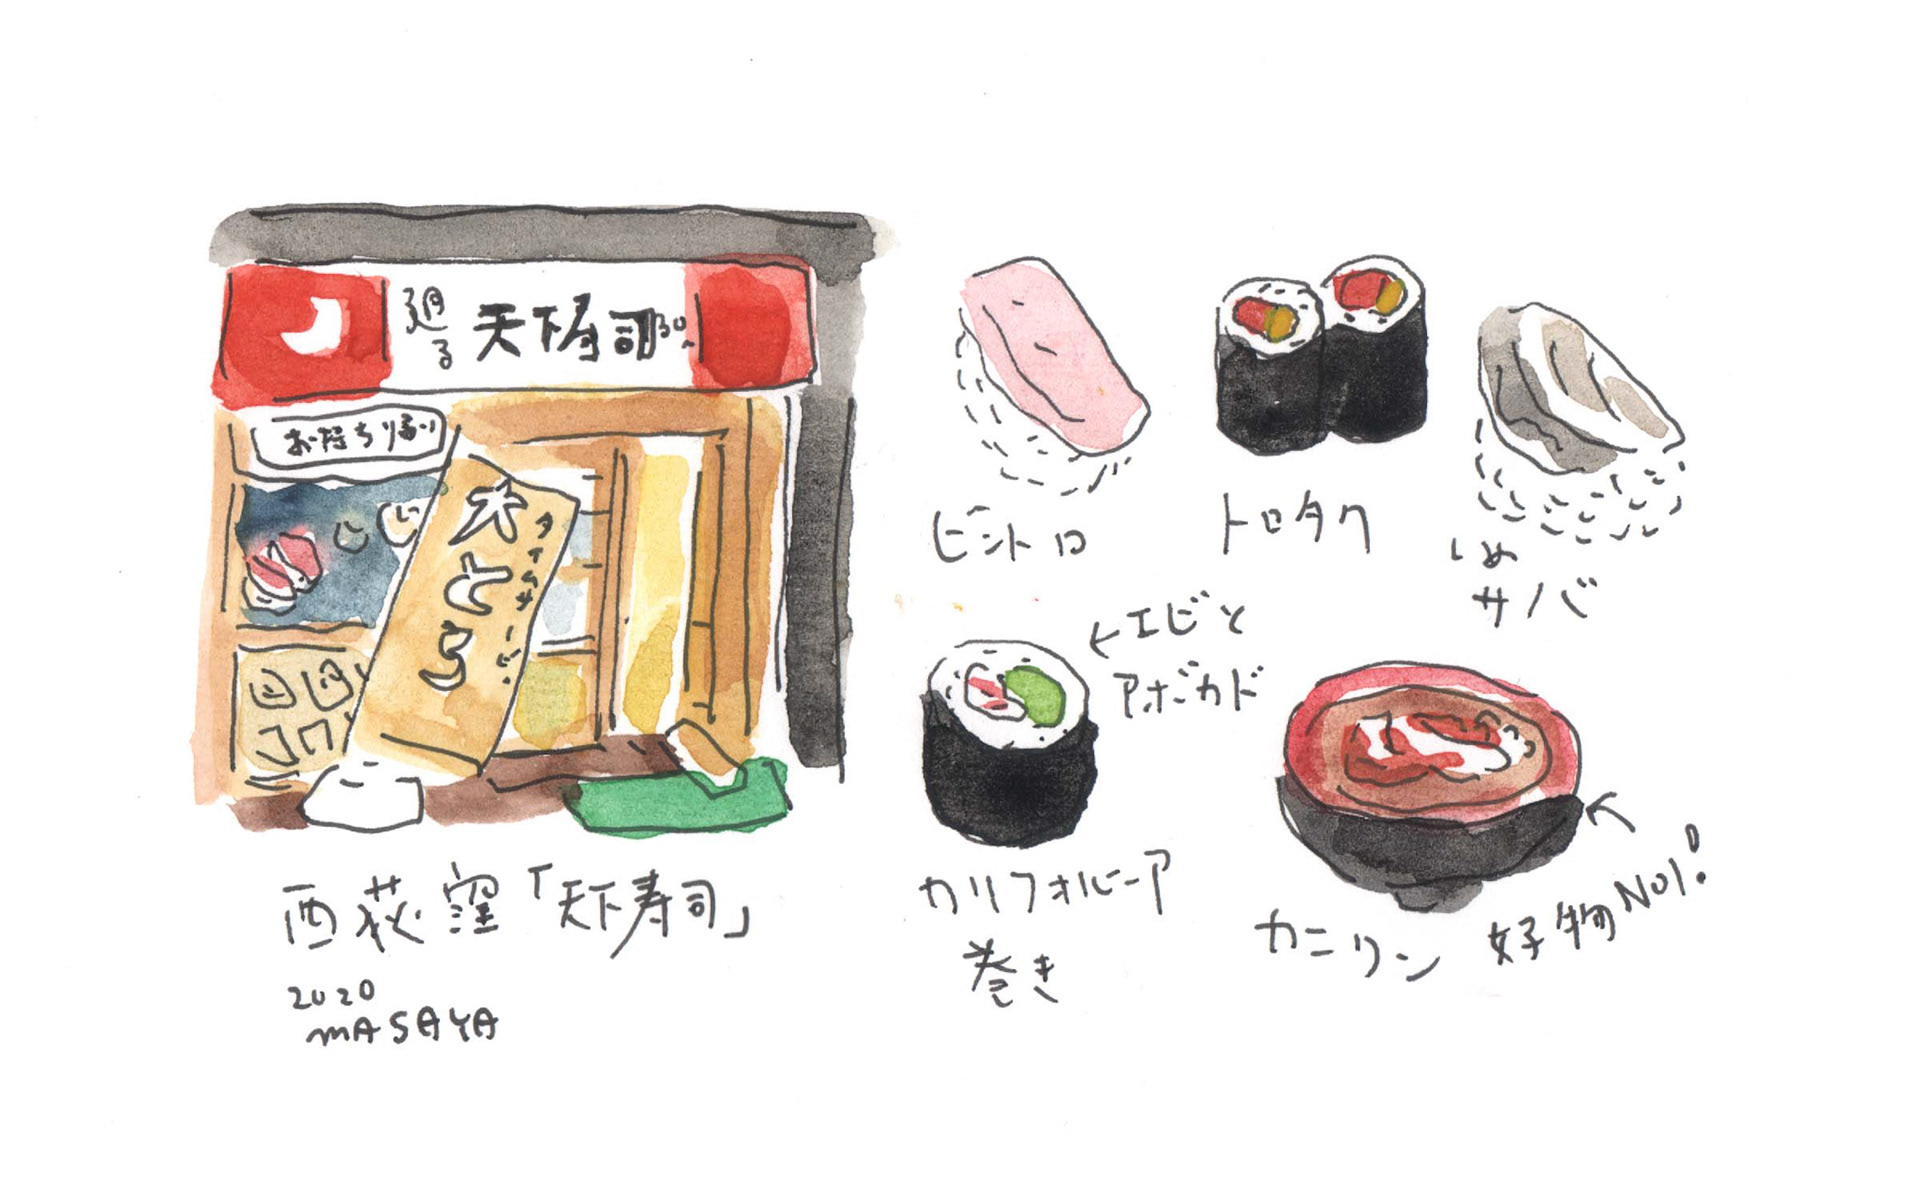 廻る
天下寿司
お持ち帰り
大とろ
タイムサービス
西荻窪「天下寿司」
2020
MASAYA
ビントロ
トロタク
しめ
サバ
←エビと
アボカド
カリフォルニア
巻き
カニリン
好物No1!